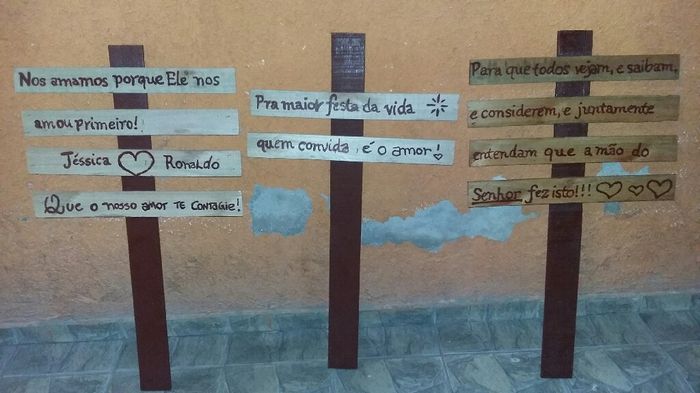 Nos amamos porque Ele nos
amou primeiro!
Jéssica ♡ Ronaldo
Que o nosso amor TE CONTAGIE!
Pra maior festa da vida
quem convida, é o amor!
Para que todos vejam, e saibam,
e considerem, e juntamente
entendam que a mão do
Senhor fez isto!!! ♡♡♡